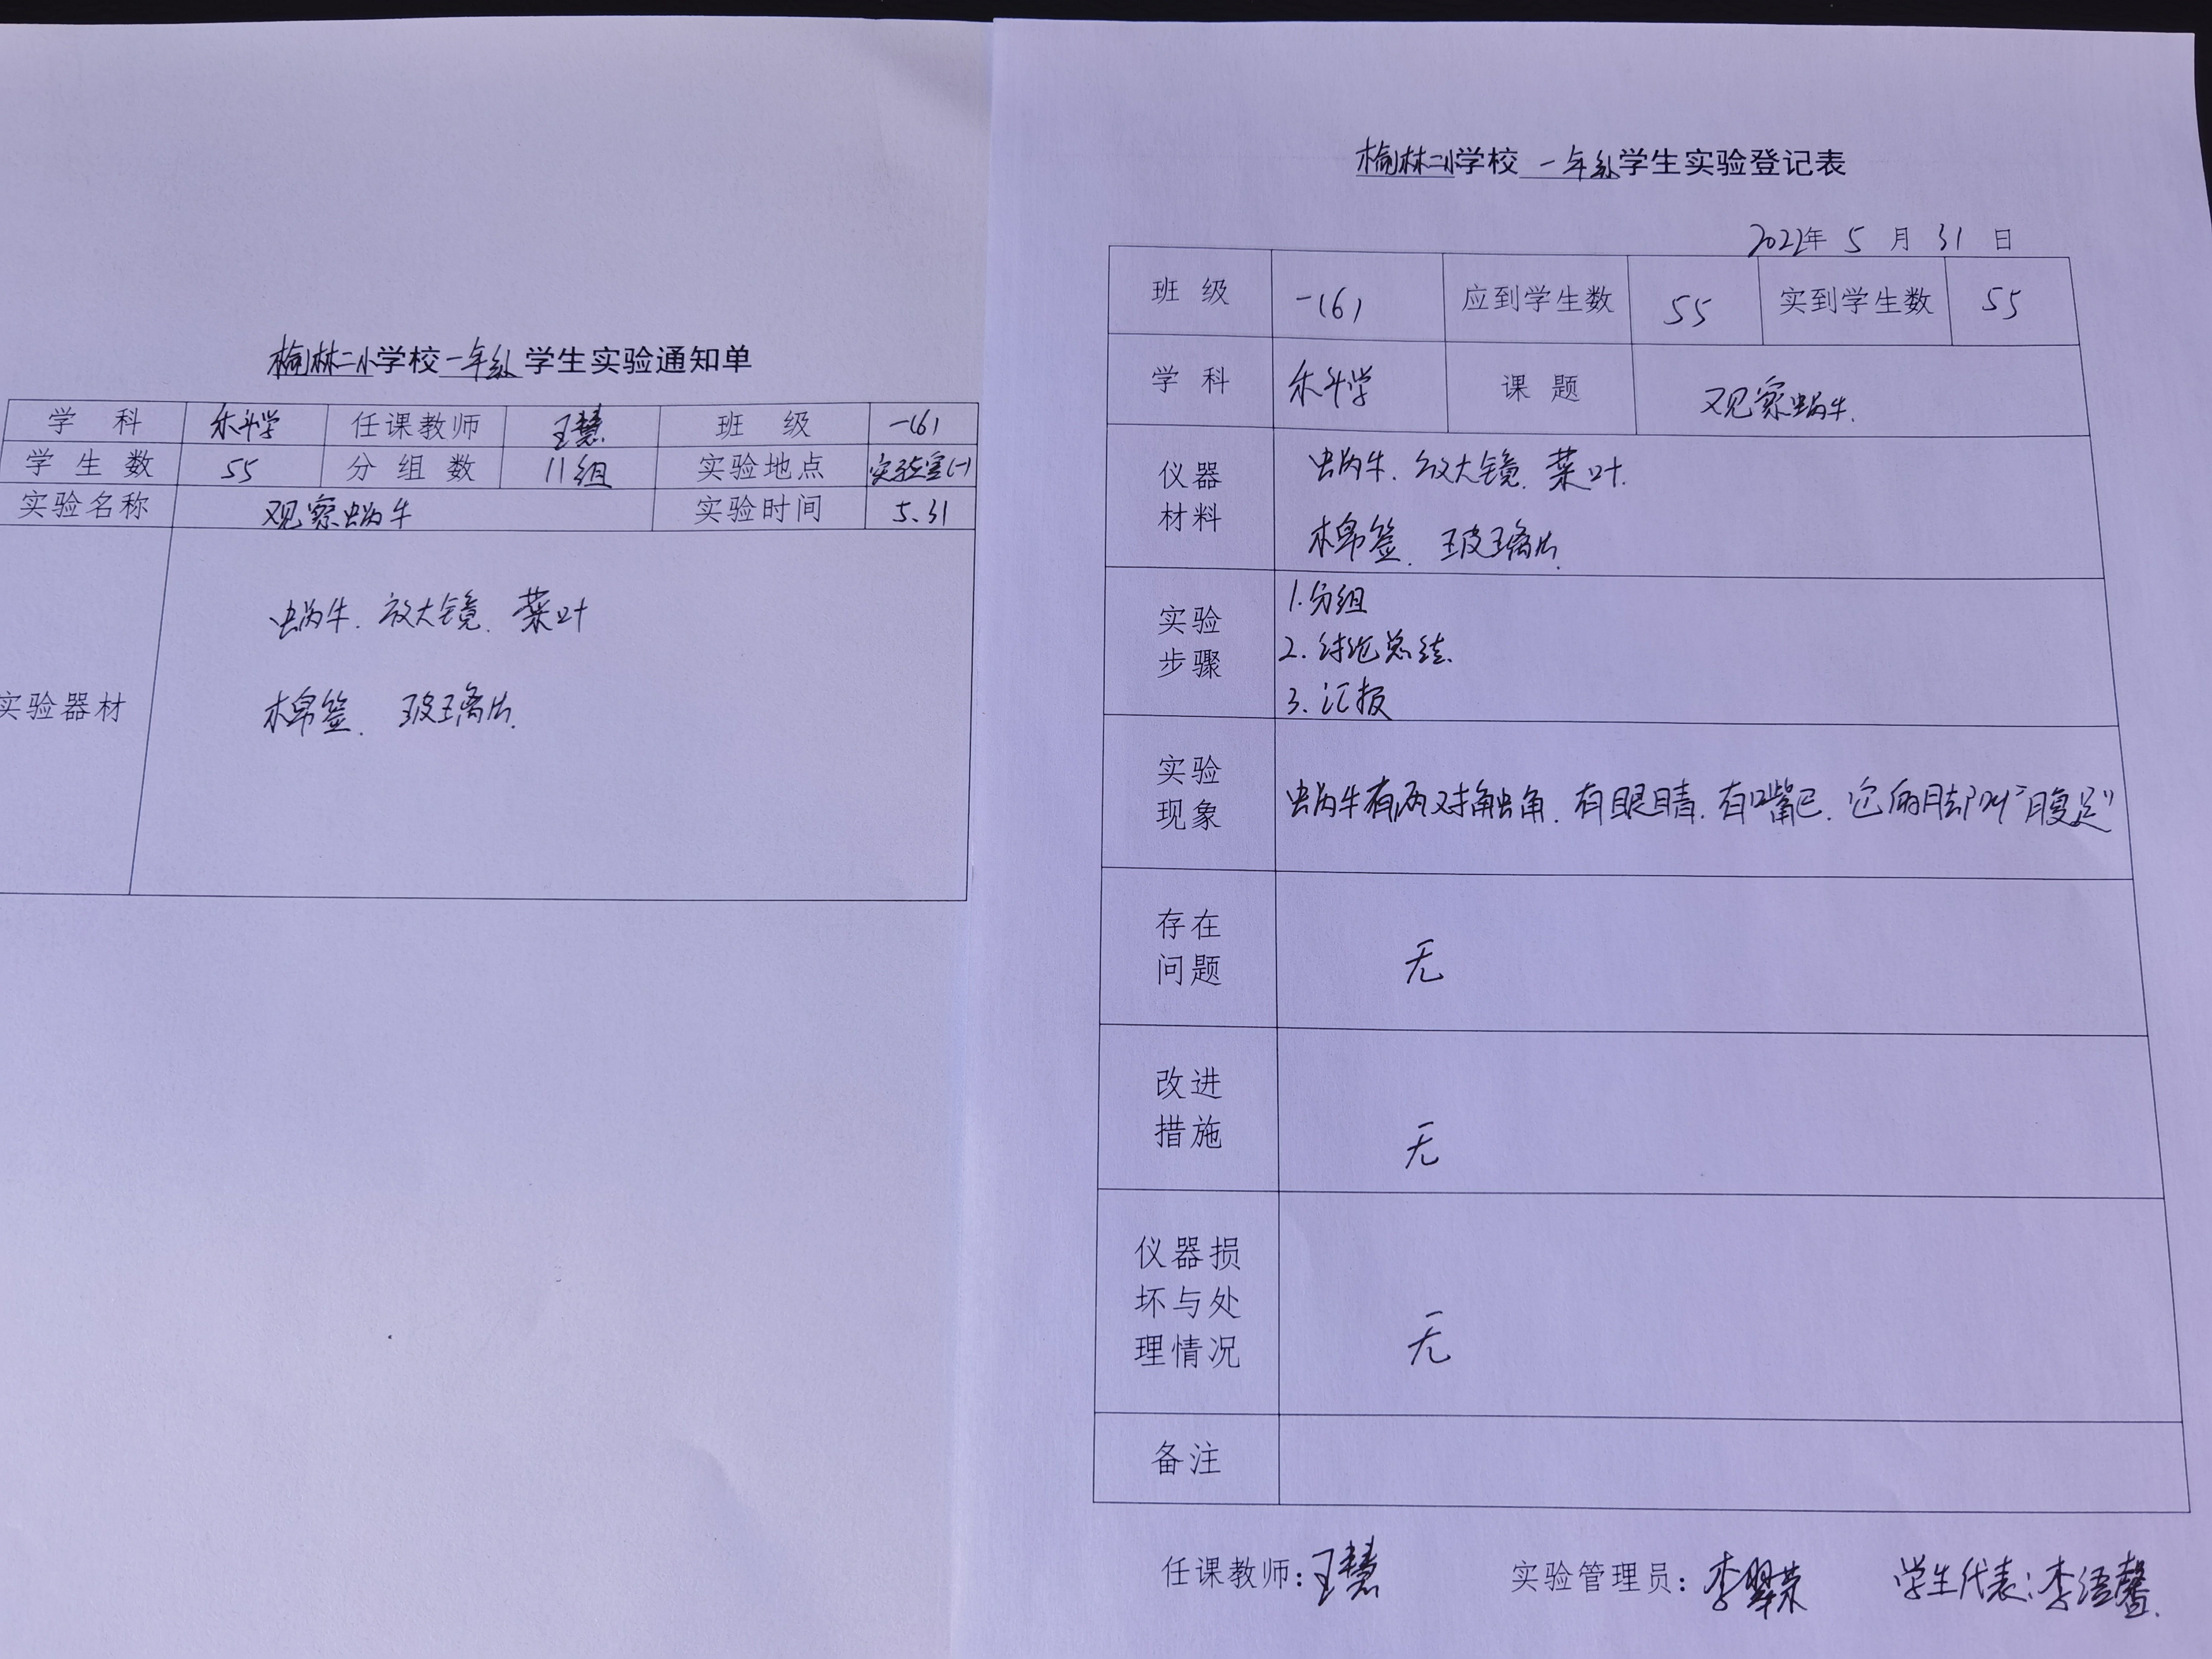 榆林二小学校一年级学生实验通知单
学 科 科学 任课教师 王慧 班 级 一(6)
学 生 数 55 分 组 数 11组 实验地点 实验室(一)
实验名称 观察蜗牛 实验时间 5.31
实验器材
蜗牛、放大镜、菜叶
棉签、玻璃片、
榆林二小学校一年级学生实验登记表
2022年 5 月 31 日
班 级 一(6) 应到学生数 55 实到学生数 55
学 科 科学 课 题 观察蜗牛.
仪器材料
蜗牛、放大镜、菜叶.
棉签、玻璃片.
实验步骤
1.分组
2.讨论总结.
3.汇报
实验现象
蜗牛有两对触角、有眼睛、有嘴巴、它的脚叫"腹足"
存在问题
无
改进措施
无
仪器损坏与处理情况
无
备注
任课教师:王慧 实验管理员:李翠荣 学生代表:李语馨.